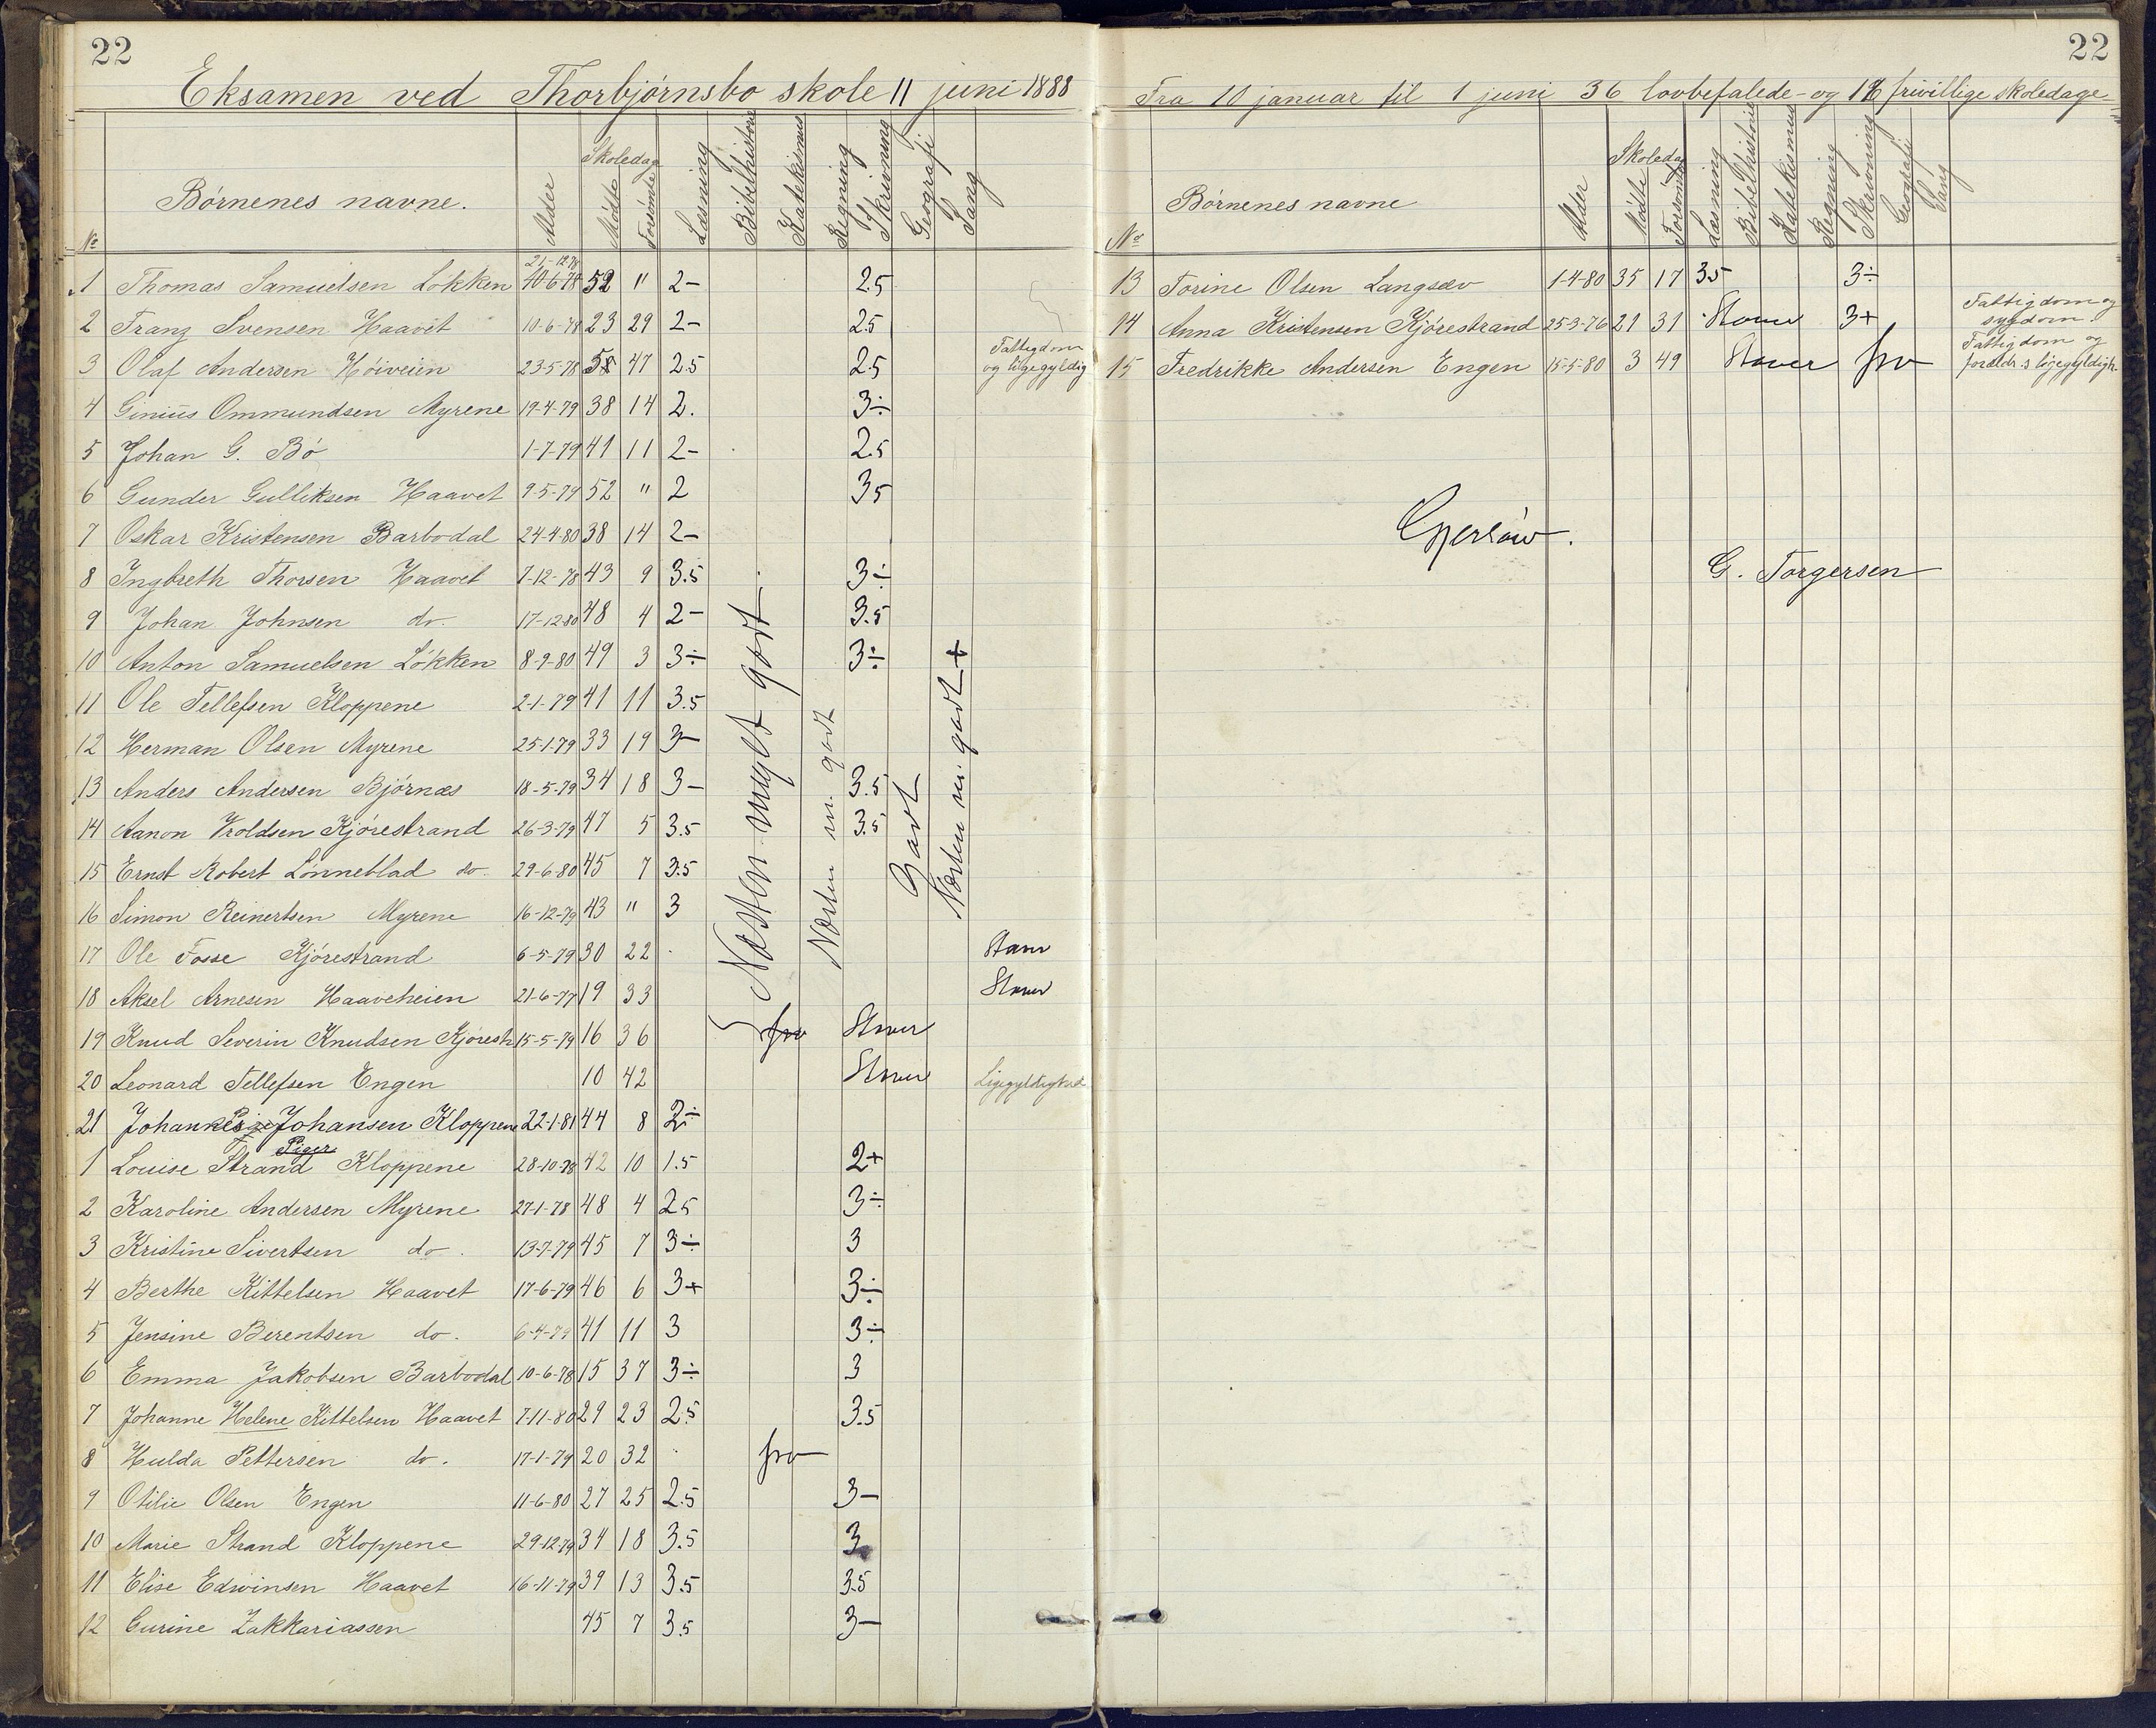 22
Eksamen ved Thorbjørnsbo skole 11 juni 1888
№ Børnenes navne. Alder Skoledage Mødte Forsømte Læsning Bibelhistorie Katekismus Regning Skrivning Geografi Sang
21-12-78
1 Thomas Samuelsen Løkken 10-6-78 52 " 2- 2.5
2 Franz Svensen Haavet 10-6-78 23 29 2- 2.5
3 Olaf Andersen Høiveien 23-5-78 5 47 2.5 2.5 Fattigdom og ligegyldig
4 Ginius Ommundsen Myrene 19-4-79 38 14 2. 3÷
5 Johan G. Bø 1-7-79 41 11 2- 2.5
6 Gunder Gulliksen Haavet 9-5-79 52 " 2 3.5
7 Oskar Kristensen Barbodal 24-4-80 38 14 2-
8 Ingbreth Thorsen Haavet 7-12-78 43 9 3.5 3÷
9 Johan Johnsen do. 17-12-80 48 4 2- 3.5
10 Anton Samuelsen Løkken 8-9-80 49 3 3÷ 3÷
11 Ole Tellefsen Kloppene 2-1-79 41 11 3.5
12 Herman Olsen Myrene 25-1-79 33 19 3-
13 Anders Andersen Bjørnæs 18-5-79 34 18 3- 3.5
14 Aanon Vroldsen Kjørestrand 26-3-79 47 5 3.5 3.5
15 Ernst Robert Lønneblad do. 29-6-80 45 7 3.5
16 Simon Reinertsen Myrene 16-12-79 43 " 3
17 Ole Fosse Kjørestrand 6-5-79 30 22 Staver
18 Aksel Arnesen Haaveheien 21-6-77 19 33 Staver
19 Knud Severin Knudsen Kjørestr 15-5-79 16 36 frv Staver
20 Leonard Tellefsen Engen 10 42 Staver Ligegyldighed
21 Johannes Johansen Kloppene 22-1-81 44 8 2÷
Næsten meget godt
Næsten m. godt
Godt
Næsten m. godt +
Piger
1 Louise Strand Kloppene 28-10-78 42 10 1.5 2+
2 Karoline Andersen Myrene 27-1-78 48 4 2.5 3÷
3 Kristine Sivertsen do. 13-7-79 45 7 3÷ 3
4 Berthe Kittelsen Haavet 17-6-79 46 6 3+ 3÷
5 Jensine Berentsen do. 6-4-79 41 11 3 3÷
6 Emma Jakobsen Barbodal 10-6-78 15 37 3÷ 3
7 Johanne Helene Kittelsen Haavet 7-11-80 29 23 2.5 3.5
8 Hulda Pettersen do. 17-1-79 20 32 frv
9 Otilie Olsen Engen 11-6-80 27 25 2.5 3-
10 Marie Strand Kloppene 29-12-79 34 18 3.5 3
11 Elise Edwinsen Haavet 16-11-79 39 13 3.5 3.5
12 Gurine Zakkariassen 45 7 3.5 3-
22
Fra 10 januar til 1 juni 36 lovbefalede- og 16 frivillige skoledage-
№ Børnenes navne Alder Skoledage Mødte Forsømte Læsning Bibelhistorie Katekismus Regning Skrivning Geografi Sang
13 Torine Olsen Langsæv 1-4-80 35 17 3.5 3÷
14 Anna Kristensen Kjørestrand 25-3-76 21 31 Staver 3+ Fattigdom og sygdom.
15 Fredrikke Andersen Engen 15-5-80 3 49 Staver frv Fattigdom og forældr.s ligegyldigh.
G. Torgersen